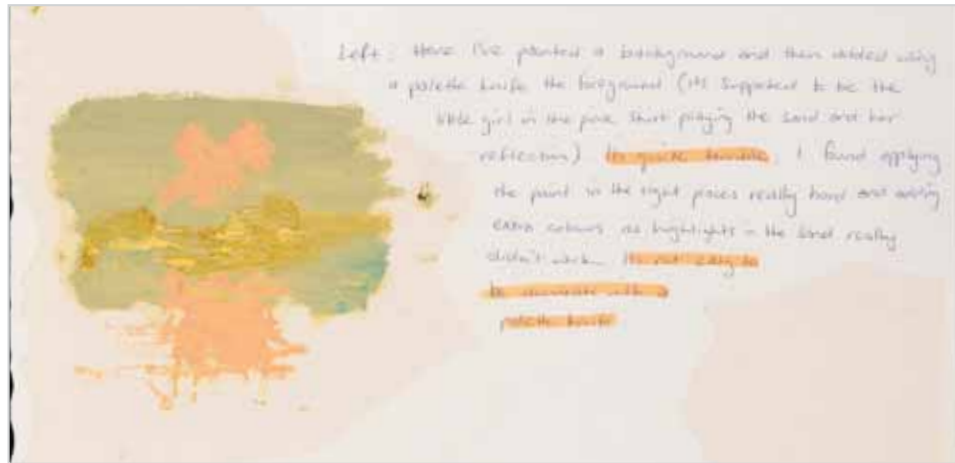 Left: Here I've painted a background and then added using
a palette knife the foreground (its supposed to be the
little girl in the pink shirt playing the sand and her
reflection) Its quite terrible, I found applying
the paint in the right places really hard and adding
extra colours as highlights in the sand really
didn't work. Its not easy to
be accurate with a
palette knife